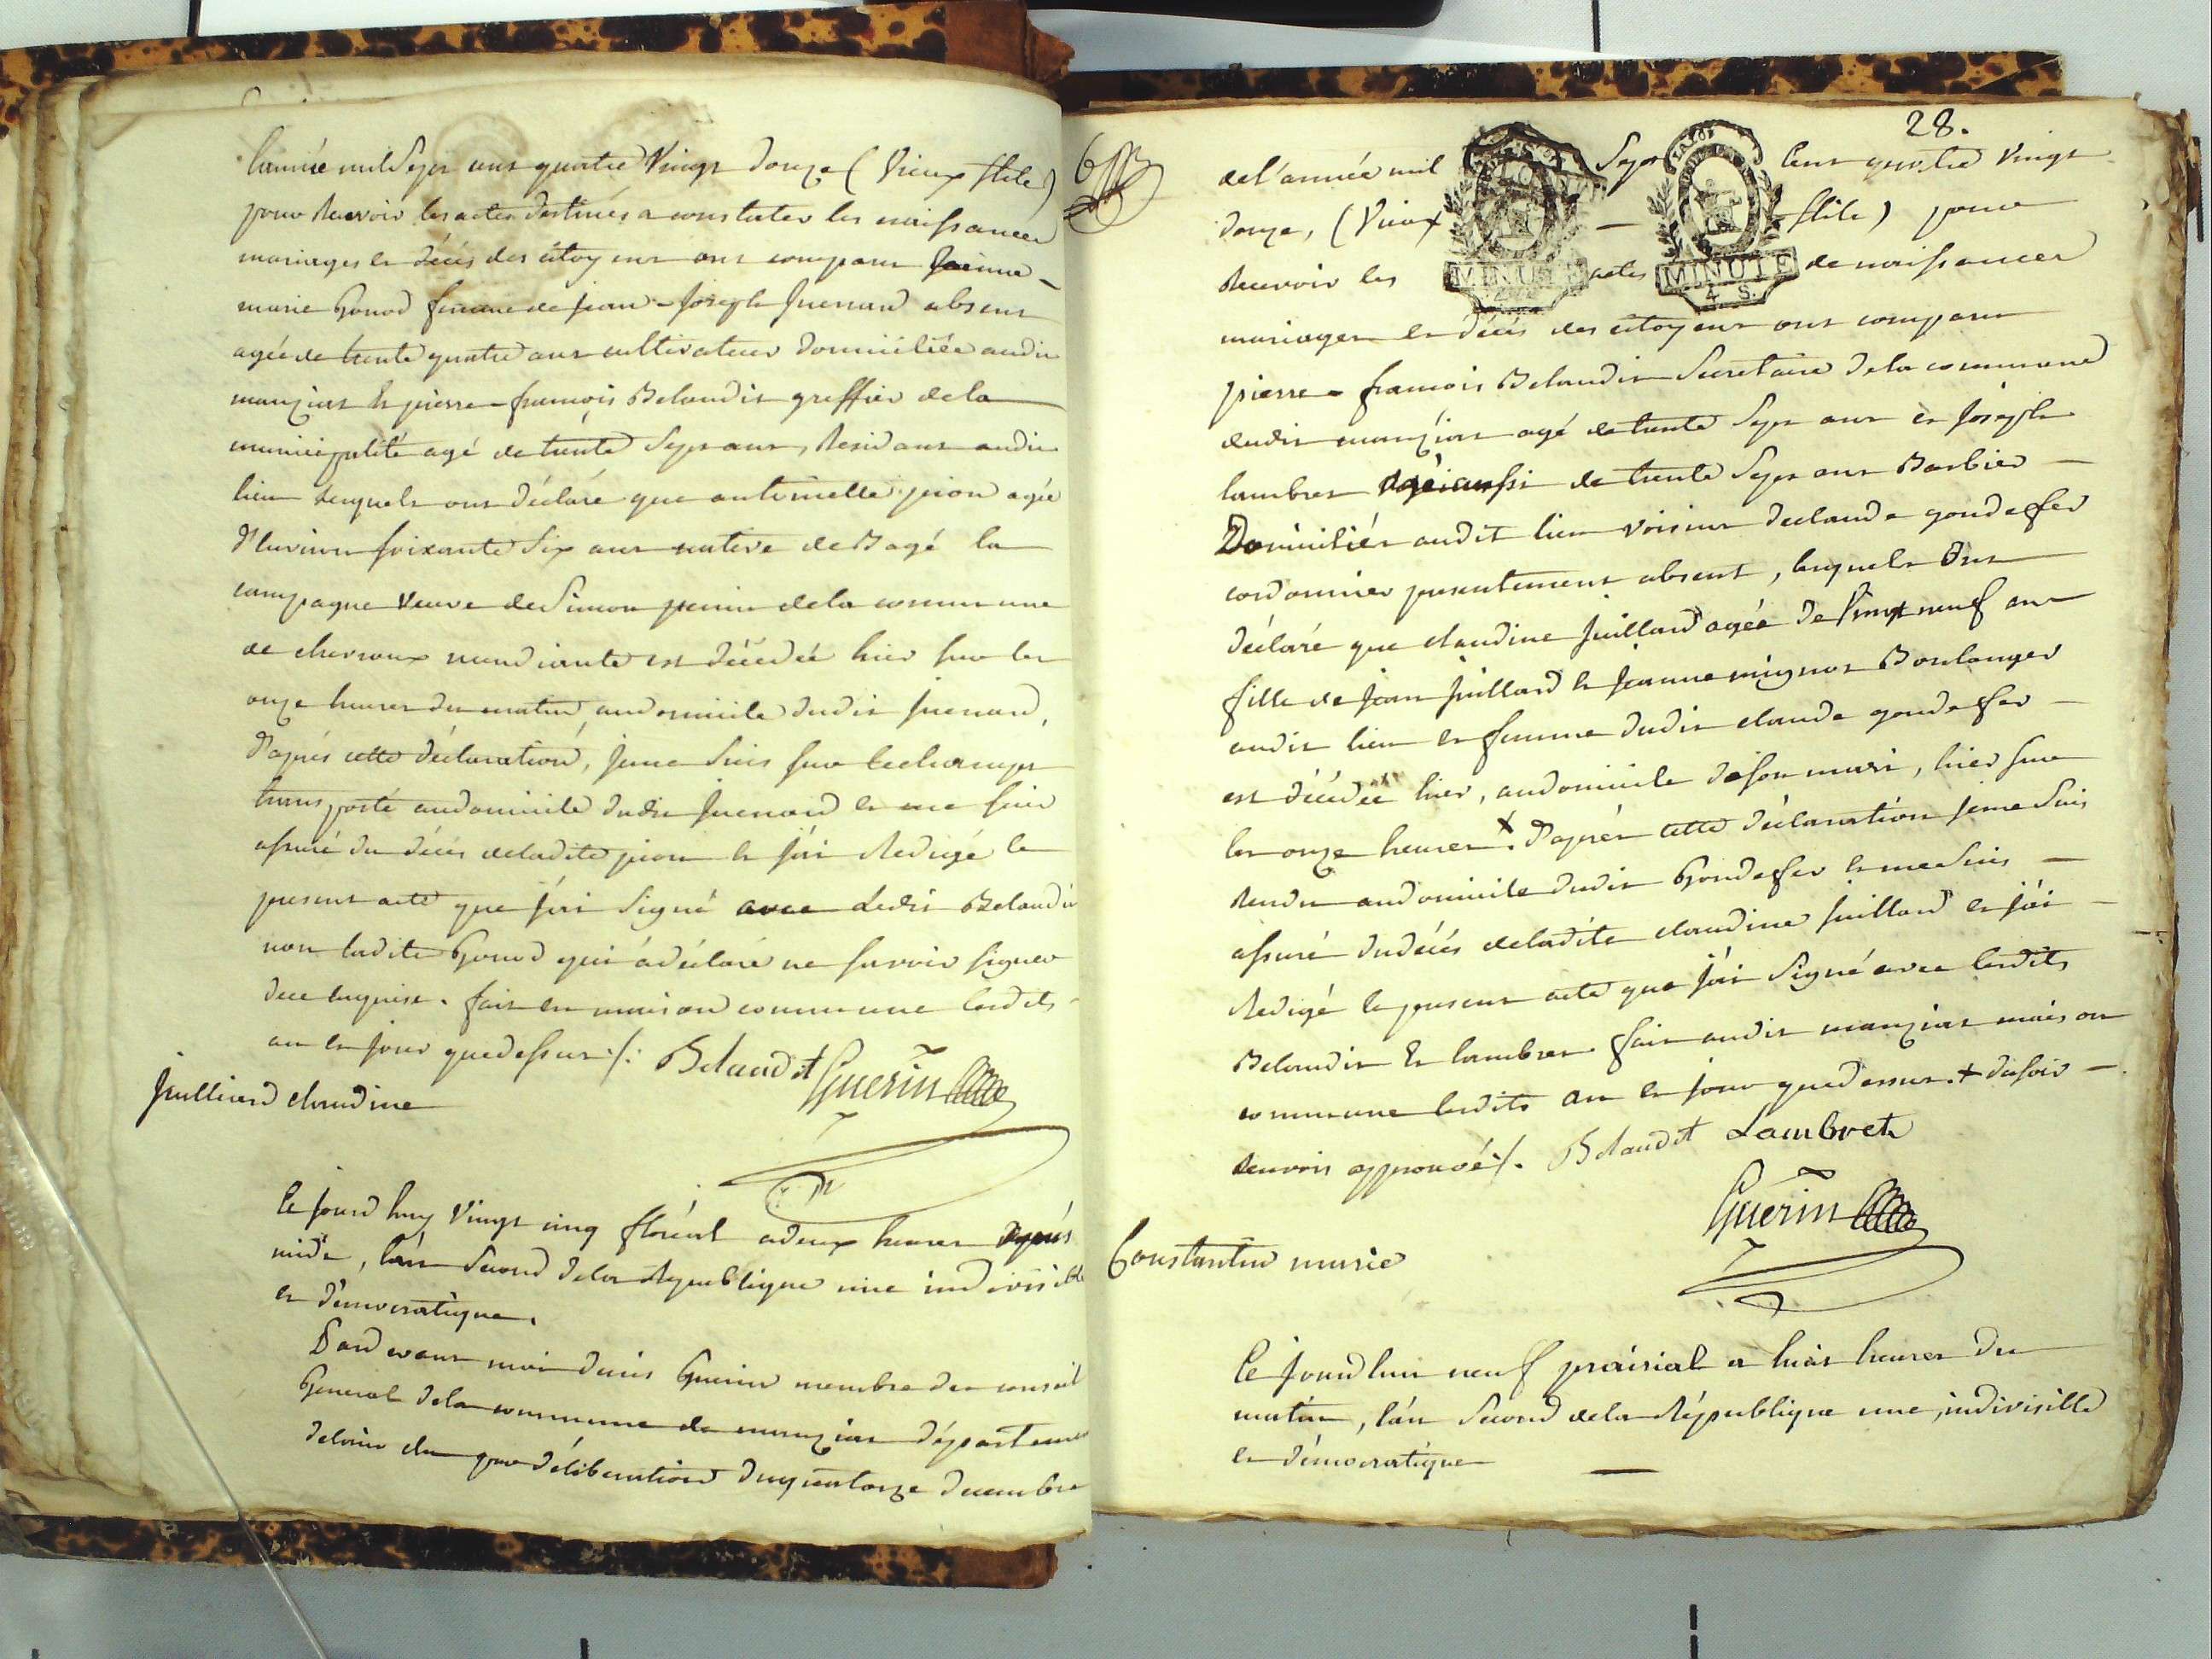 l'année mil sept cent quatre vingt douze (vieux stile)
pour recevoir les actes destinés a constater les naissances
mariages et décès des citoyens ont comparu jeanne-
marie Gonod femme de jean-joseph juenard absent
agée de trente quatre ans cultivateur domiciliée audit
manziat et pierre-francois Belaudit greffier de la
municipalité agé de trente sept ans, residant audit
lieu lesquels ont déclaré que anthmelle pion agée
d'environ soixante six ans native de Bagé la
campagne veuve de Simon perrin de la commune
de chevroux mendiante est décédée hier sur les
onze heures du matin au domicile dudit juenard,
d'aprés cette déclaration, je me suis sur le champ
transporté au domicile dudit juenard et me suis
assuré du décès de ladite pion et j'ai redigé le
present acte que j'ai signé avec ledit Belaudit
non ladite Gonod qui a déclaré ne savoir signer
de ce enquise. fait en maison commune lesdits
an et jour que dessus ./. Belaudit Guerin
juilliard claudine
Ce jourd huy vingt cinq floréal a deux heures aprés
midi, l'an second de la republique une indivisible
et démocratique.
Pardevant moi denis Guerin membre du conseil
General de la commune de manziat département
de l'ain élu par délibération du quatorze decembre
28.
de l'année mil sept cent quatre vingt
douze, (vieux - stile) pour
recevoir les actes de naissances
MINUTE MINUTE
4 S.
mariages et décès des citoyens ont comparu
pierre-francois Belaudit Secretaire de la commune
dudit manziat agé de trente sept ans et joseph
lambret agé aussi de trente sept ans Barbier -
Domiciliés audit lieu voisins de claude gondeffer
cordonnier presentement absent, lesquels ont
déclaré que claudine juillard agée de vingt neuf ans
fille de jean juillard et jeanne mignot Boulanger
audit lieu et femme dudit claude gondeffer -
est décédée hier, au domicile de son mari, hier sur
les onze heures + . D'aprés cette déclaration je me suis
rendu au domicile dudit Gondeffer et me suis -
assuré du décés de ladite claudine juillard et j'ai -
redigé le present acte que j'ai signé avec lesdits
Belaudit et lambret. fait audit manziat maison
commune lesdits an et jour que dessus. + du soir -
renvoi approuvé ./. Belaudit Lambret
Guerin
Constantin marie
Ce jourdhui neuf prairial a huit heures du
matin, l'an second de la République une, indivisible
et démocratique -